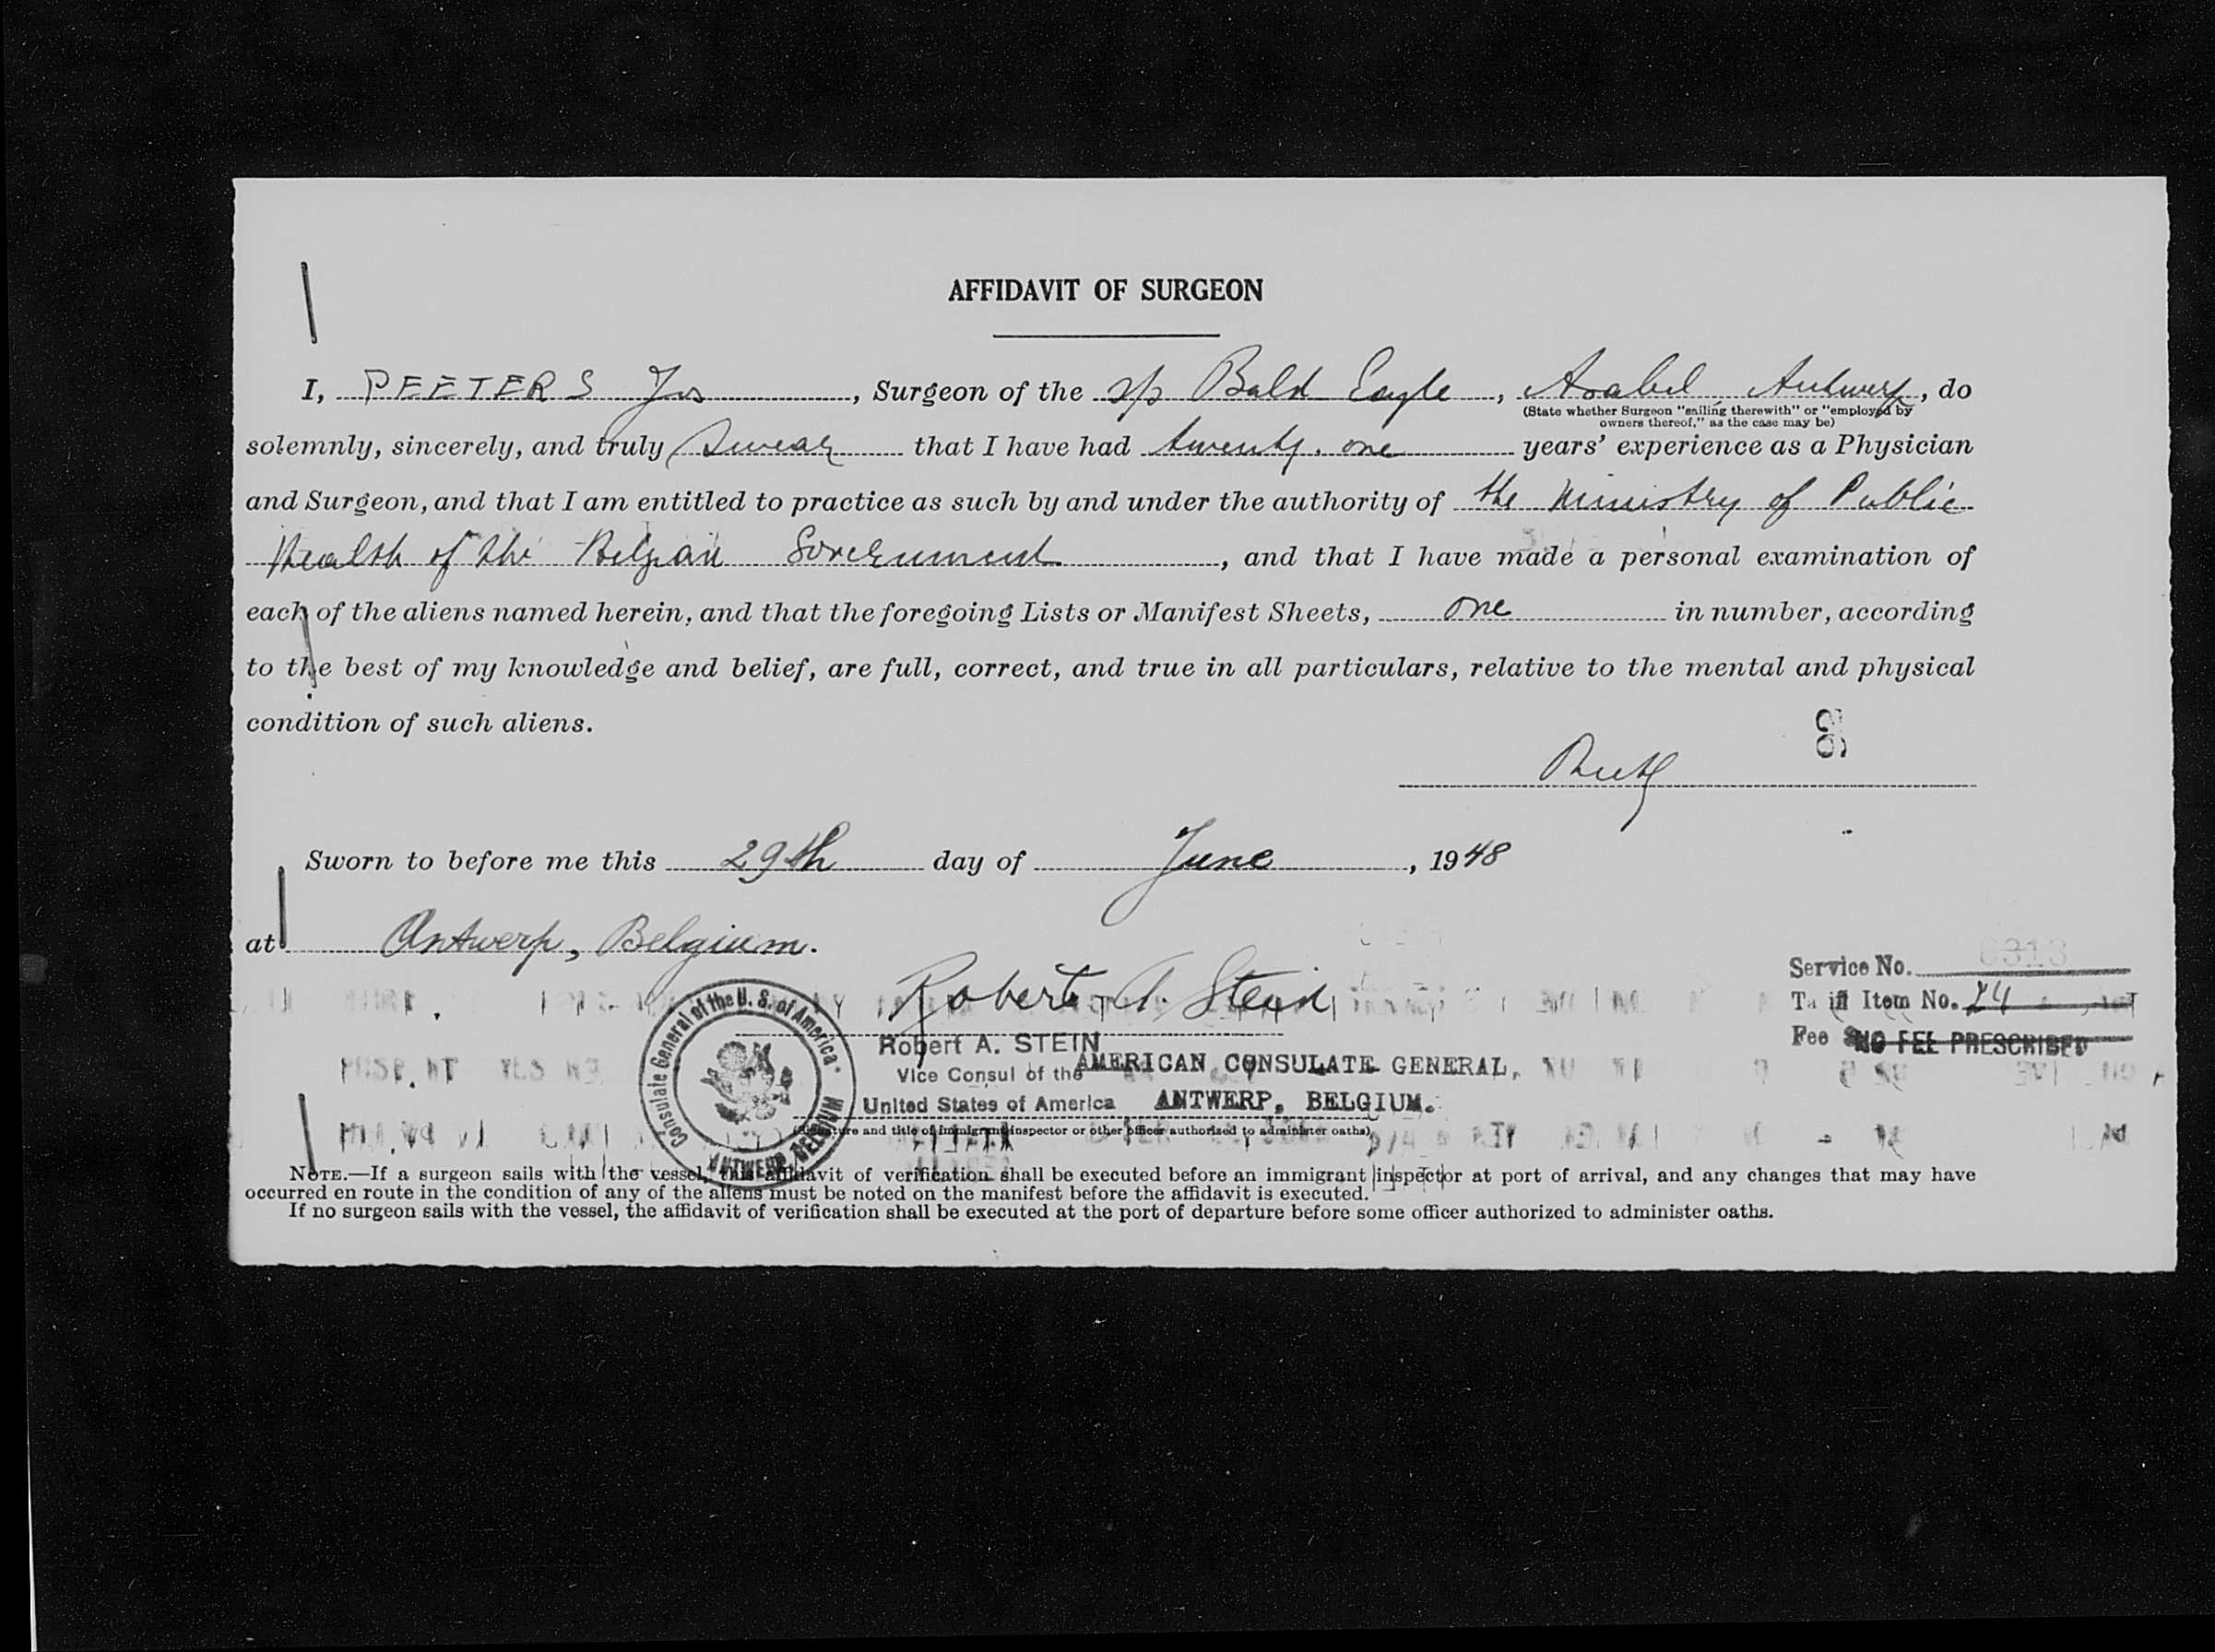 AFFIDAVIT OF SURGEON
I, PEETERS Jos, Surgeon of the s/s Bald Eagle, Arabel, Antwerp, do
(State whether Surgeon "sailing therewith" or "employed by
owners thereof," as the case may be)
solemnly, sincerely, and truly swear that I have had twenty. one years' experience as a Physician
and Surgeon, and that I am entitled to practice as such by and under the authority of the Ministry of Public
Health of the Belgian Government, and that I have made a personal examination of
each of the aliens named herein, and that the foregoing Lists or Manifest Sheets, one in number, according
to the best of my knowledge and belief, are full, correct, and true in all particulars, relative to the mental and physical
condition of such aliens.
Sworn to before me this 29th day of June, 1948
at Antwerp, Belgium.
Robert A. Stein
Service No. 6313
Tariff Item No. 24
Fee $ NO FEE PRESCRIBED
Robert A. STEIN
Vice Consul of the AMERICAN CONSULATE GENERAL,
United States of America ANTWERP, BELGIUM.
(Signature and title of immigrant inspector or other officer authorized to administer oaths)
Consulate General of the U. S. of America
ANTWERP, BELGIUM
NOTE.—If a surgeon sails with the vessel, this affidavit of verification shall be executed before an immigrant inspector at port of arrival, and any changes that may have
occurred en route in the condition of any of the aliens must be noted on the manifest before the affidavit is executed.
If no surgeon sails with the vessel, the affidavit of verification shall be executed at the port of departure before some officer authorized to administer oaths.